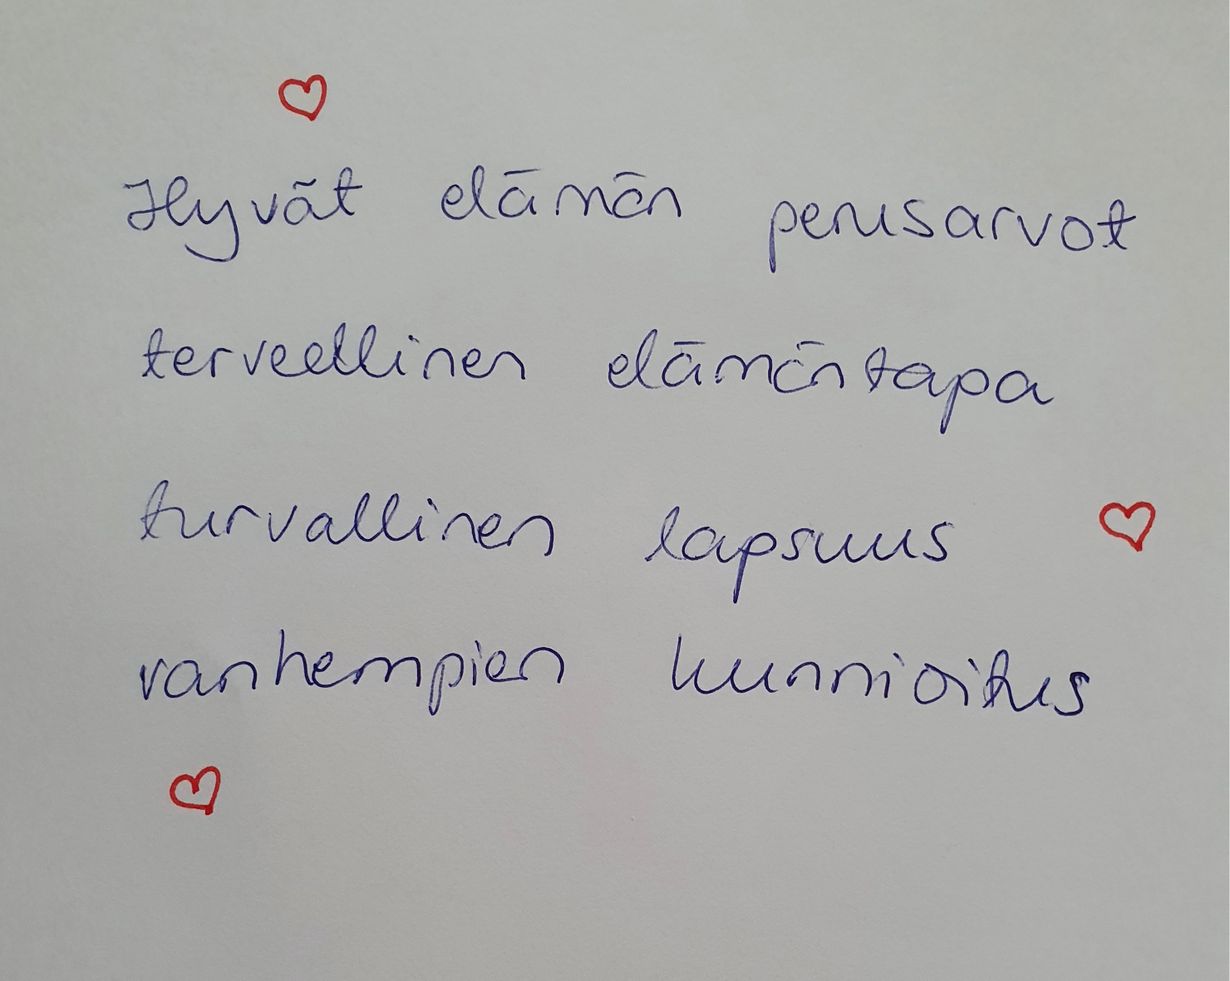 Hyvät elämän perusarvot
terveellinen elämäntapa
turvallinen lapsuus
vanhempien kunnioitus